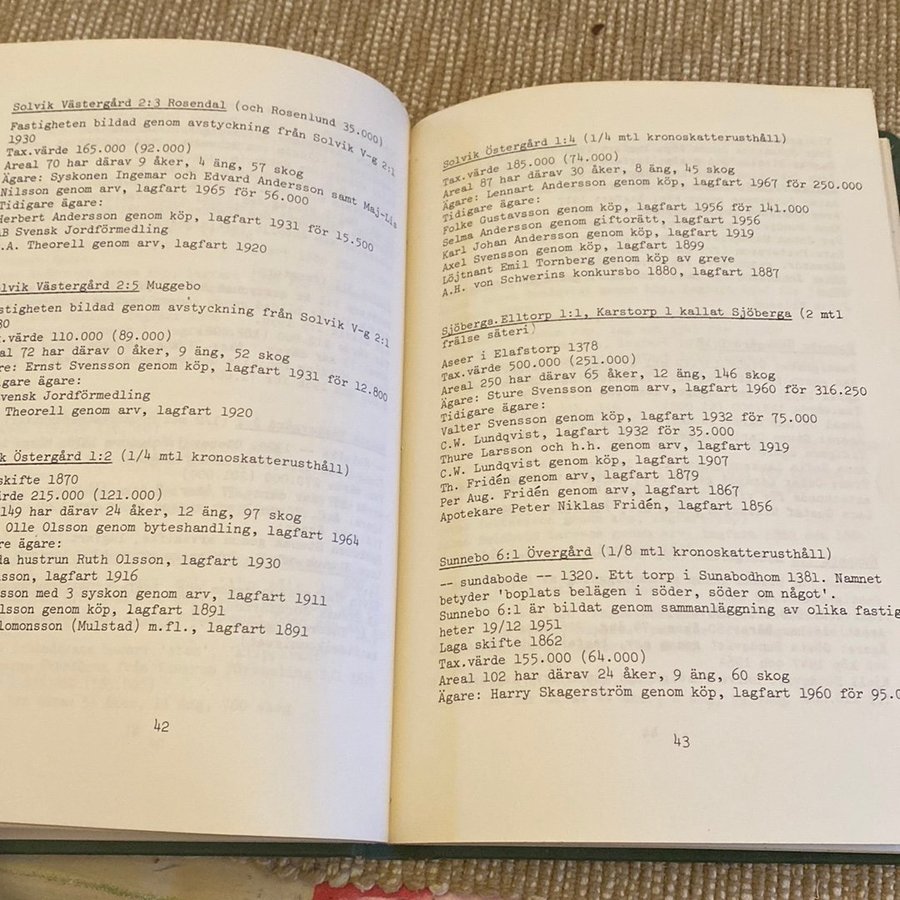 Solvik Västergård 2:3 Rosendal (och Rosenlund 35.000)
Fastigheten bildad genom avstyckning från Solvik V-g 2:1
1930
Tax.värde 165.000 (92.000)
Areal 70 har därav 9 åker, 4 äng, 57 skog
Ägare: Syskonen Ingemar och Edvard Andersson samt Maj-Lis
Nilsson genom arv, lagfart 1965 för 56.000
Tidigare ägare:
Herbert Andersson genom köp, lagfart 1931 för 15.500
AB Svensk Jordförmedling
.A. Theorell genom arv, lagfart 1920
lvik Västergård 2:5 Muggebo
stigheten bildad genom avstyckning från Solvik V-g 2:1
30
.värde 110.000 (89.000)
al 72 har därav 0 åker, 9 äng, 52 skog
re: Ernst Svensson genom köp, lagfart 1931 för 12.800
igare ägare:
vensk Jordförmedling
Theorell genom arv, lagfart 1920
k Östergård 1:2 (1/4 mtl kronoskatterusthåll)
skifte 1870
ärde 215.000 (121.000)
149 har därav 24 åker, 12 äng, 97 skog
Olle Olsson genom byteshandling, lagfart 1964
re ägare:
da hustrun Ruth Olsson, lagfart 1930
sson, lagfart 1916
sson med 3 syskon genom arv, lagfart 1911
lsson genom köp, lagfart 1891
lomonsson (Mulstad) m.fl., lagfart 1891
42
Solvik Östergård 1:4 (1/4 mtl kronoskatterusthåll)
Tax.värde 185.000 (74.000)
Areal 87 har därav 30 åker, 8 äng, 45 skog
Ägare: Lennart Andersson genom köp, lagfart 1967 för 250.000
Tidigare ägare:
Folke Gustavsson genom köp, lagfart 1956 för 141.000
Selma Andersson genom giftorätt, lagfart 1956
Karl Johan Andersson genom köp, lagfart 1919
Axel Svensson genom köp, lagfart 1899
Löjtnant Emil Tornberg genom köp av greve
A.H. von Schwerins konkursbo 1880, lagfart 1887
Sjöberga.Elltorp 1:1, Karstorp 1 kallat Sjöberga (2 mtl
frälse säteri)
Aseer i Elafstorp 1378
Tax.värde 500.000 (251.000)
Areal 250 har därav 65 åker, 12 äng, 146 skog
Ägare: Sture Svensson genom arv, lagfart 1960 för 316.250
Tidigare ägare:
Valter Svensson genom köp, lagfart 1932 för 75.000
C.W. Lundqvist, lagfart 1932 för 35.000
Thure Larsson och h.h. genom arv, lagfart 1919
C.W. Lundqvist genom köp, lagfart 1907
Th. Fridén genom arv, lagfart 1879
Per Aug. Fridén genom arv, lagfart 1867
Apotekare Peter Niklas Fridén, lagfart 1856
Sunnebo 6:1 Övergård (1/8 mtl kronoskatterusthåll)
-- sundabode -- 1320. Ett torp i Sunabodhom 1381. Namnet
betyder 'boplats belägen i söder, söder om något'.
Sunnebo 6:1 är bildat genom sammanläggning av olika fastig
heter 19/12 1951
Laga skifte 1862
Tax.värde 155.000 (64.000)
Areal 102 har därav 24 åker, 9 äng, 60 skog
Ägare: Harry Skagerström genom köp, lagfart 1960 för 95.0
43